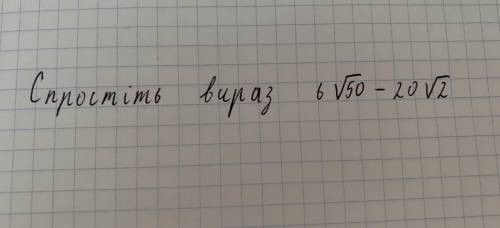 Спростіть вираз 6√50 - 20√2